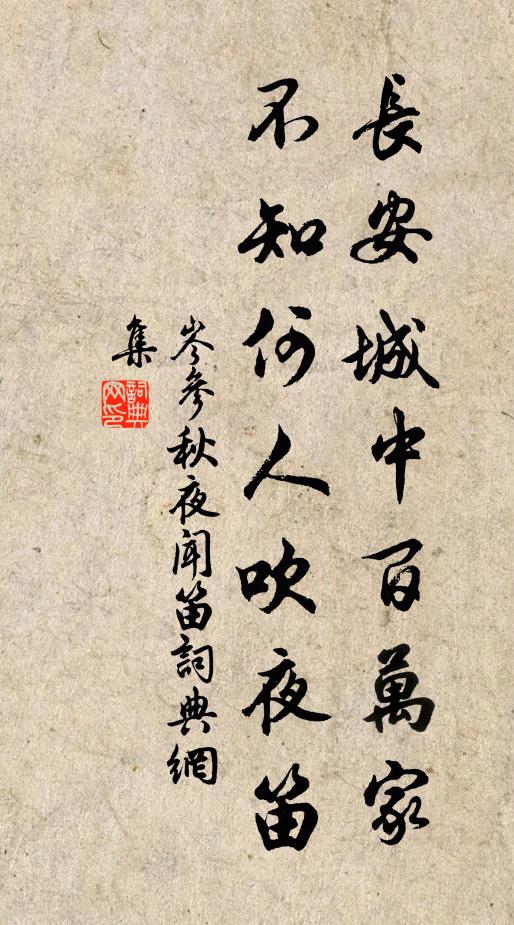 長安城中百萬家
不知何人吹夜笛
岑參秋夜聞笛詞典網
集
詞典
网印